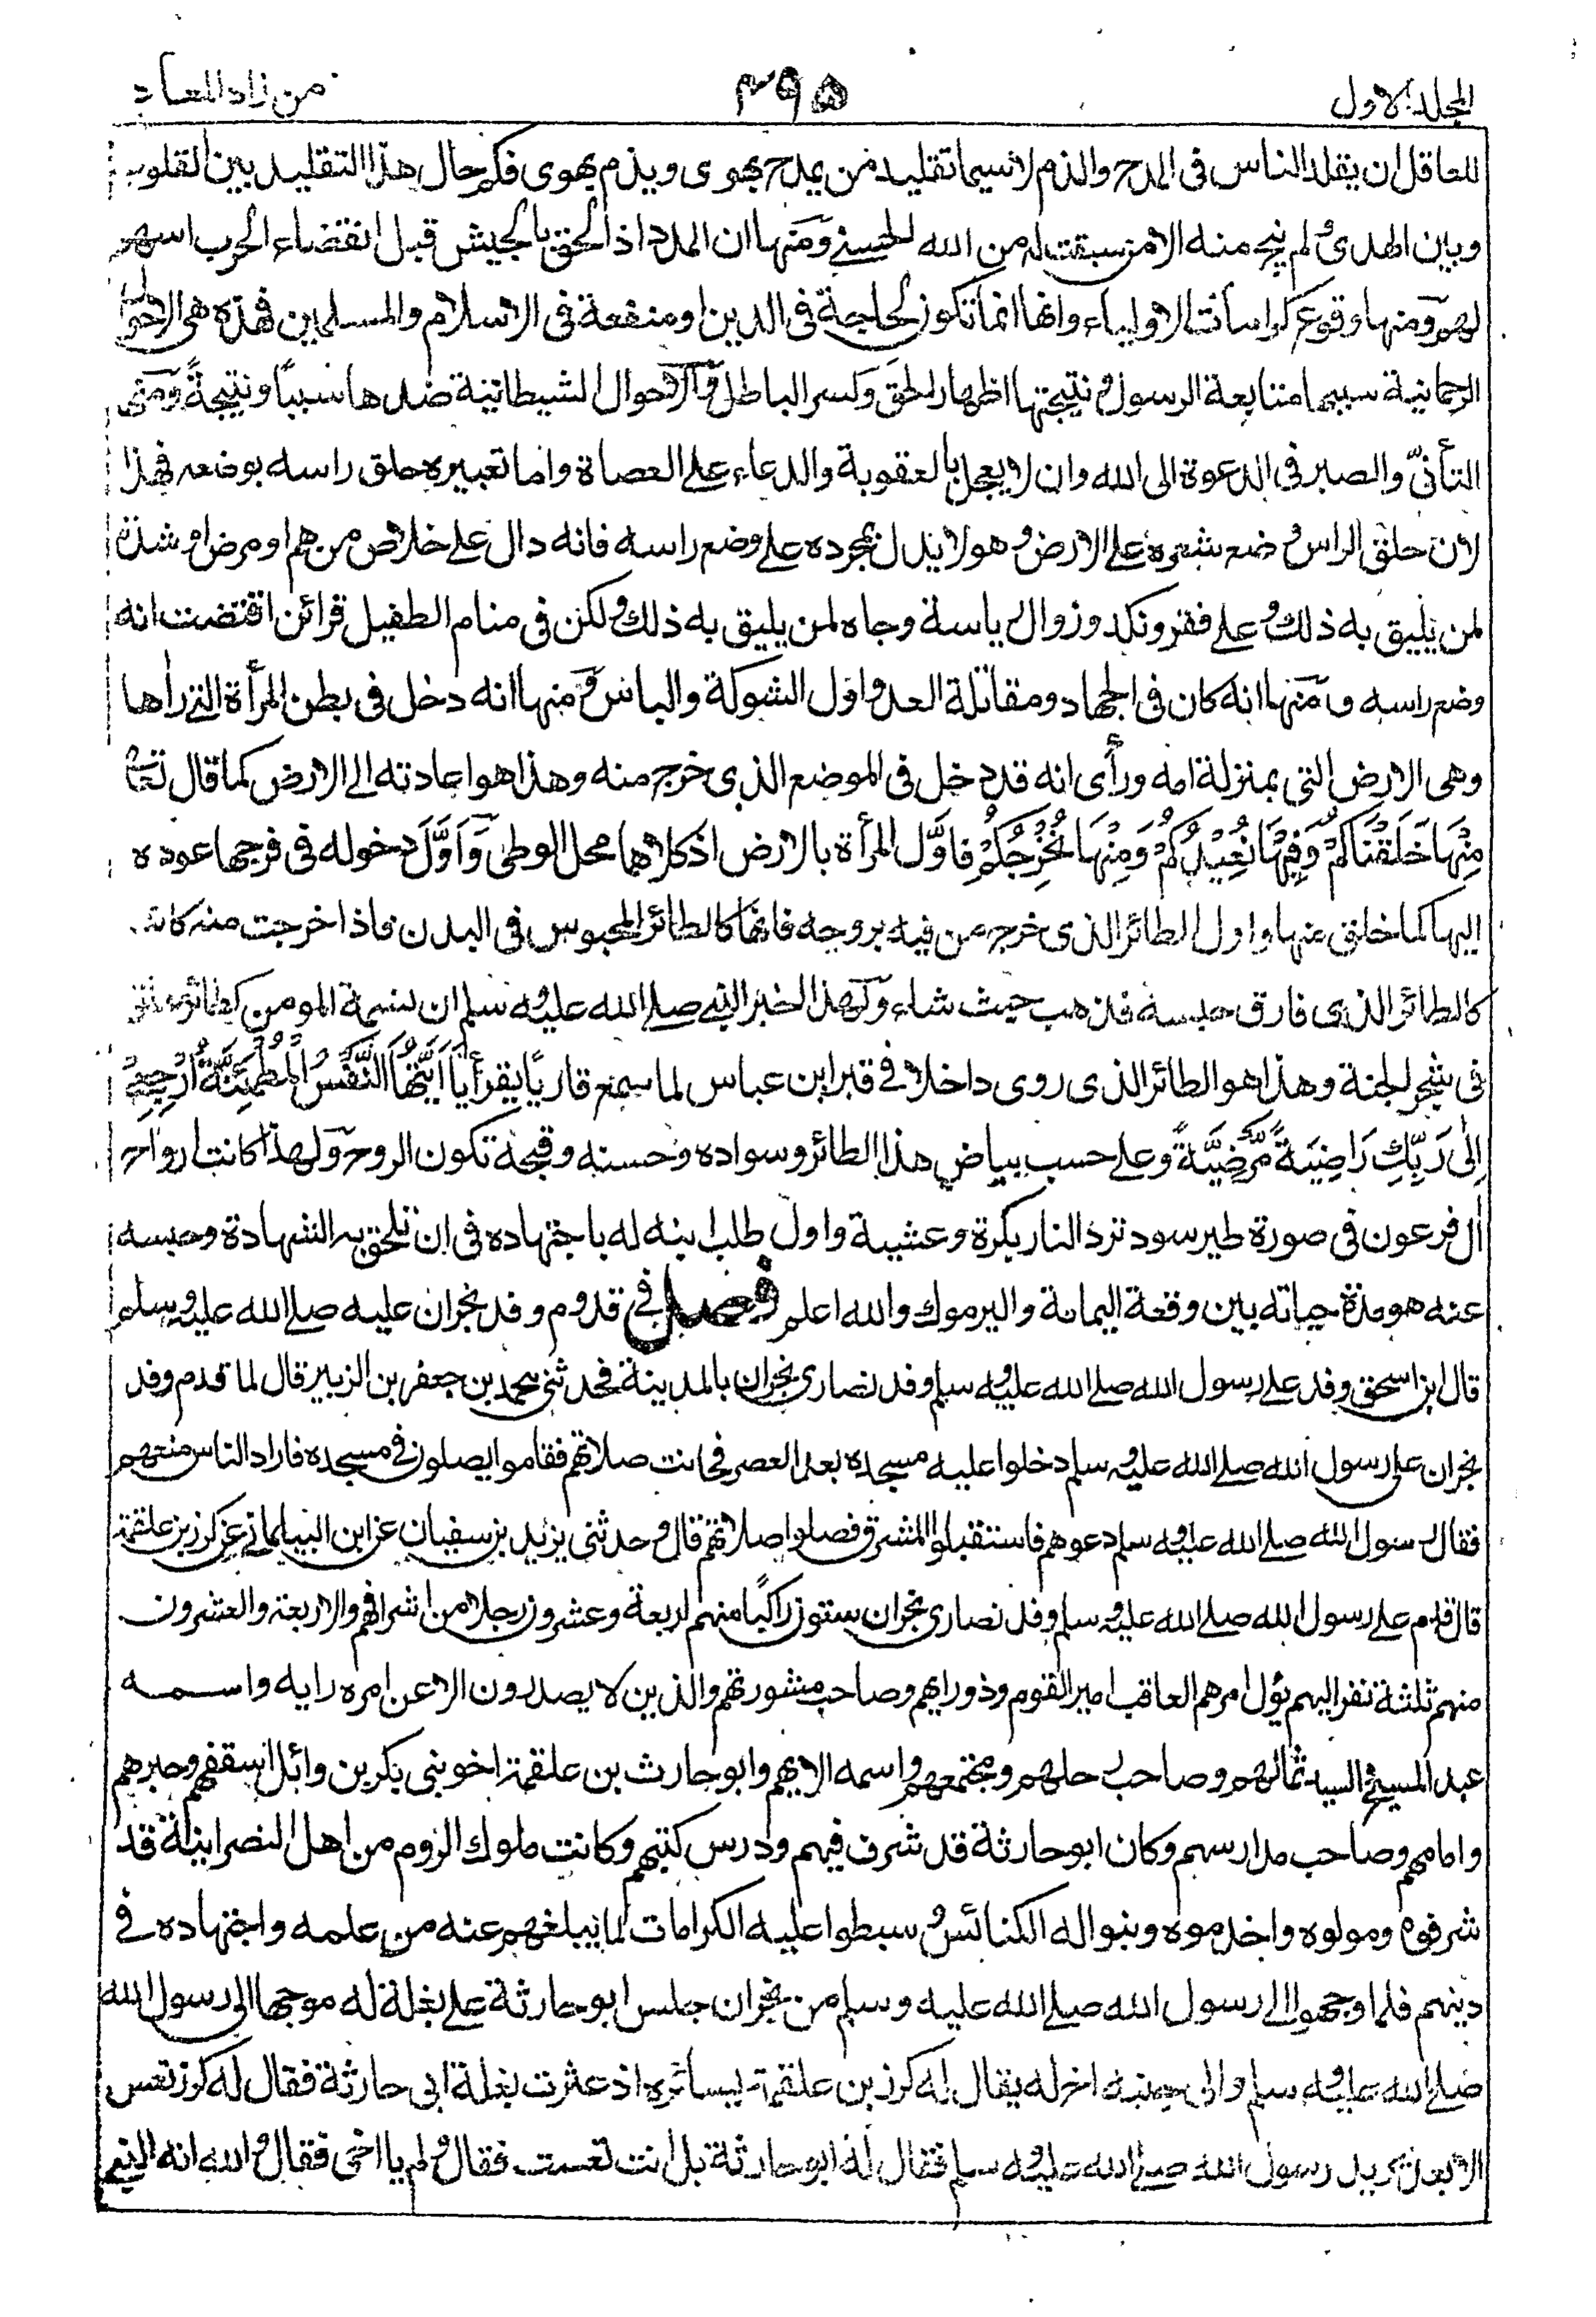 المجلد الاول
۳۹۵
من زاد المعاد
للعاقل ان يقلد الناس فى المدح والذم لاسيما تقليد من يمدح بهوى ويذم بهوى فكم حال هذا التقليد بين القلوب
وبين الهدى ولم ينج منه الا من سبقت له من الله الحسنى ومنها ان المدد اذا لحق بالجيش قبل انقضاء الحرب اسهم
لهم ومنها وقوع كرامات الاولياء وانها انما تكون لحاجة فى الدين او منفعة فى الاسلام والمسلمين فهذه هى الاحوال
الرحمانية سببها متابعة الرسول ونتيجتها اظهار الحق وكسر الباطل والاحوال الشيطانية ضدها سببًا ونتيجةً ومنها
التأنّى والصبر فى الدعوة الى الله وان لا يعجل بالعقوبة والدعاء على العصاة واما تعبيره حلق راسه بوضعه فهذا
لان حلق الراس وضع شعره على الارض وهو لا يدل بمجرده على وضع راسه فانه دال على خلاص من هم او مرض او شدة
لمن يليق به ذلك وعلى فقر ونكد وزوال رياسة وجاه لمن يليق به ذلك ولكن فى منام الطفيل قرائن اقتضت انه
وضع راسه ومنها انه كان فى الجهاد ومقاتلة العدو اول الشوكة والباس ومنها انه دخل فى بطن المرأة التى رأها
وهى الارض التى بمنزلة امه ورأى انه قد دخل فى الموضع الذى خرج منه وهذا هو اعادته الى الارض كما قال تعالى
مِنْهَا خَلَقْنَاكُمْ وَفِيْهَا نُعِيْدُكُمْ وَمِنْهَا نُخْرِجُكُمْ فاوّل المرأة بالارض اذ كلاهما محل الوطى وَاَوّلَ دخوله فى فرجها عوده
اليها كما خلق منها واول الطائر الذى خرج من فيه بروحه فانها كالطائر المحبوس فى البدن فاذا خرجت منه كانت
كالطائر الذى فارق حبسه فذهب حيث شاء ولهذا اخبر النبى صلى الله عليه وسلم ان نسمة المومن كطائر يعلق
فى شجر الجنة وهذا هو الطائر الذى روى داخلا فى قبر ابن عباس لما سمع قاريًا يقرأ يَا اَيَّتُهَا النَّفْسُ الْمُطْمَئِنَّةُ ارْجِعِيْ
اِلٰى رَبِّكِ رَاضِيَةً مَّرْضِيَّةً وعلى حسب بياض هذا الطائر وسواده وحسنه وقبحه تكون الروح ولهذا كانت ارواح
اٰل فرعون فى صورة طير سود ترد النار بكرة وعشية واول طلب ابنه له باجتهاده فى ان تلحق به الشهادة وحبسه
عنه هو مدة حياته بين وقعة اليمامة واليرموك والله اعلم فصل فى قدوم وفد نجران عليه صلى الله عليه وسلم
قال ابن اسحق وفد على رسول الله صلى الله عليه وسلم وفد نصارى نجران بالمدينة فحدثنى محمد بن جعفر بن الزبير قال لما قدم وفد
نجران على رسول الله صلى الله عليه وسلم دخلوا عليه مسجده بعد العصر فحانت صلاتهم فقاموا يصلون فى مسجده فاراد الناس منعهم
فقال رسول الله صلى الله عليه وسلم دعوهم فاستقبلوا المشرق فصلوا صلاتهم قال وحدثنى يزيد بن سفيان عن ابن البيلمانى عن كرز بن علقمة
قال قدم على رسول الله صلى الله عليه وسلم وفد نصارى نجران ستون راكبًا منهم اربعة وعشرون رجلا من اشرافهم والاربعة والعشرون
منهم ثلثة نفر اليهم يؤل امرهم العاقب امير القوم وذو رايهم وصاحب مشورتهم والذين لا يصدرون الا عن امره رايه واسمه
عبد المسيح والسيد ثمالهم وصاحب رحلهم ومجتمعهم واسمه الايهم وابو حارث بن علقمة اخو بنى بكر بن وائل اسقفهم وحبرهم
وامامهم وصاحب مدارسهم وكان ابو حارثة قد شرف فيهم ودرس كتبهم وكانت ملوك الروم من اهل النصرانية قد
شرفوه ومولوه واخدموه وبنوا له الكنائس وسبطوا عليه الكرامات لما يبلغهم عنه من علمه واجتهاده فى
دينهم فلما وجهوا الى رسول الله صلى الله عليه وسلم من نجران جلس ابو حارثة على بغلة له موجها الى رسول الله
صلى الله عليه وسلم والى جنبه اخ له يقال له كرز بن علقمة يسائره اذ عثرت بغلة ابى حارثة فقال له كرز تعس
الابعد يريد رسول الله صلى الله عليه وسلم فقال له ابو حارثة بل انت تعست فقال ولم يا اخى فقال والله انه النبى